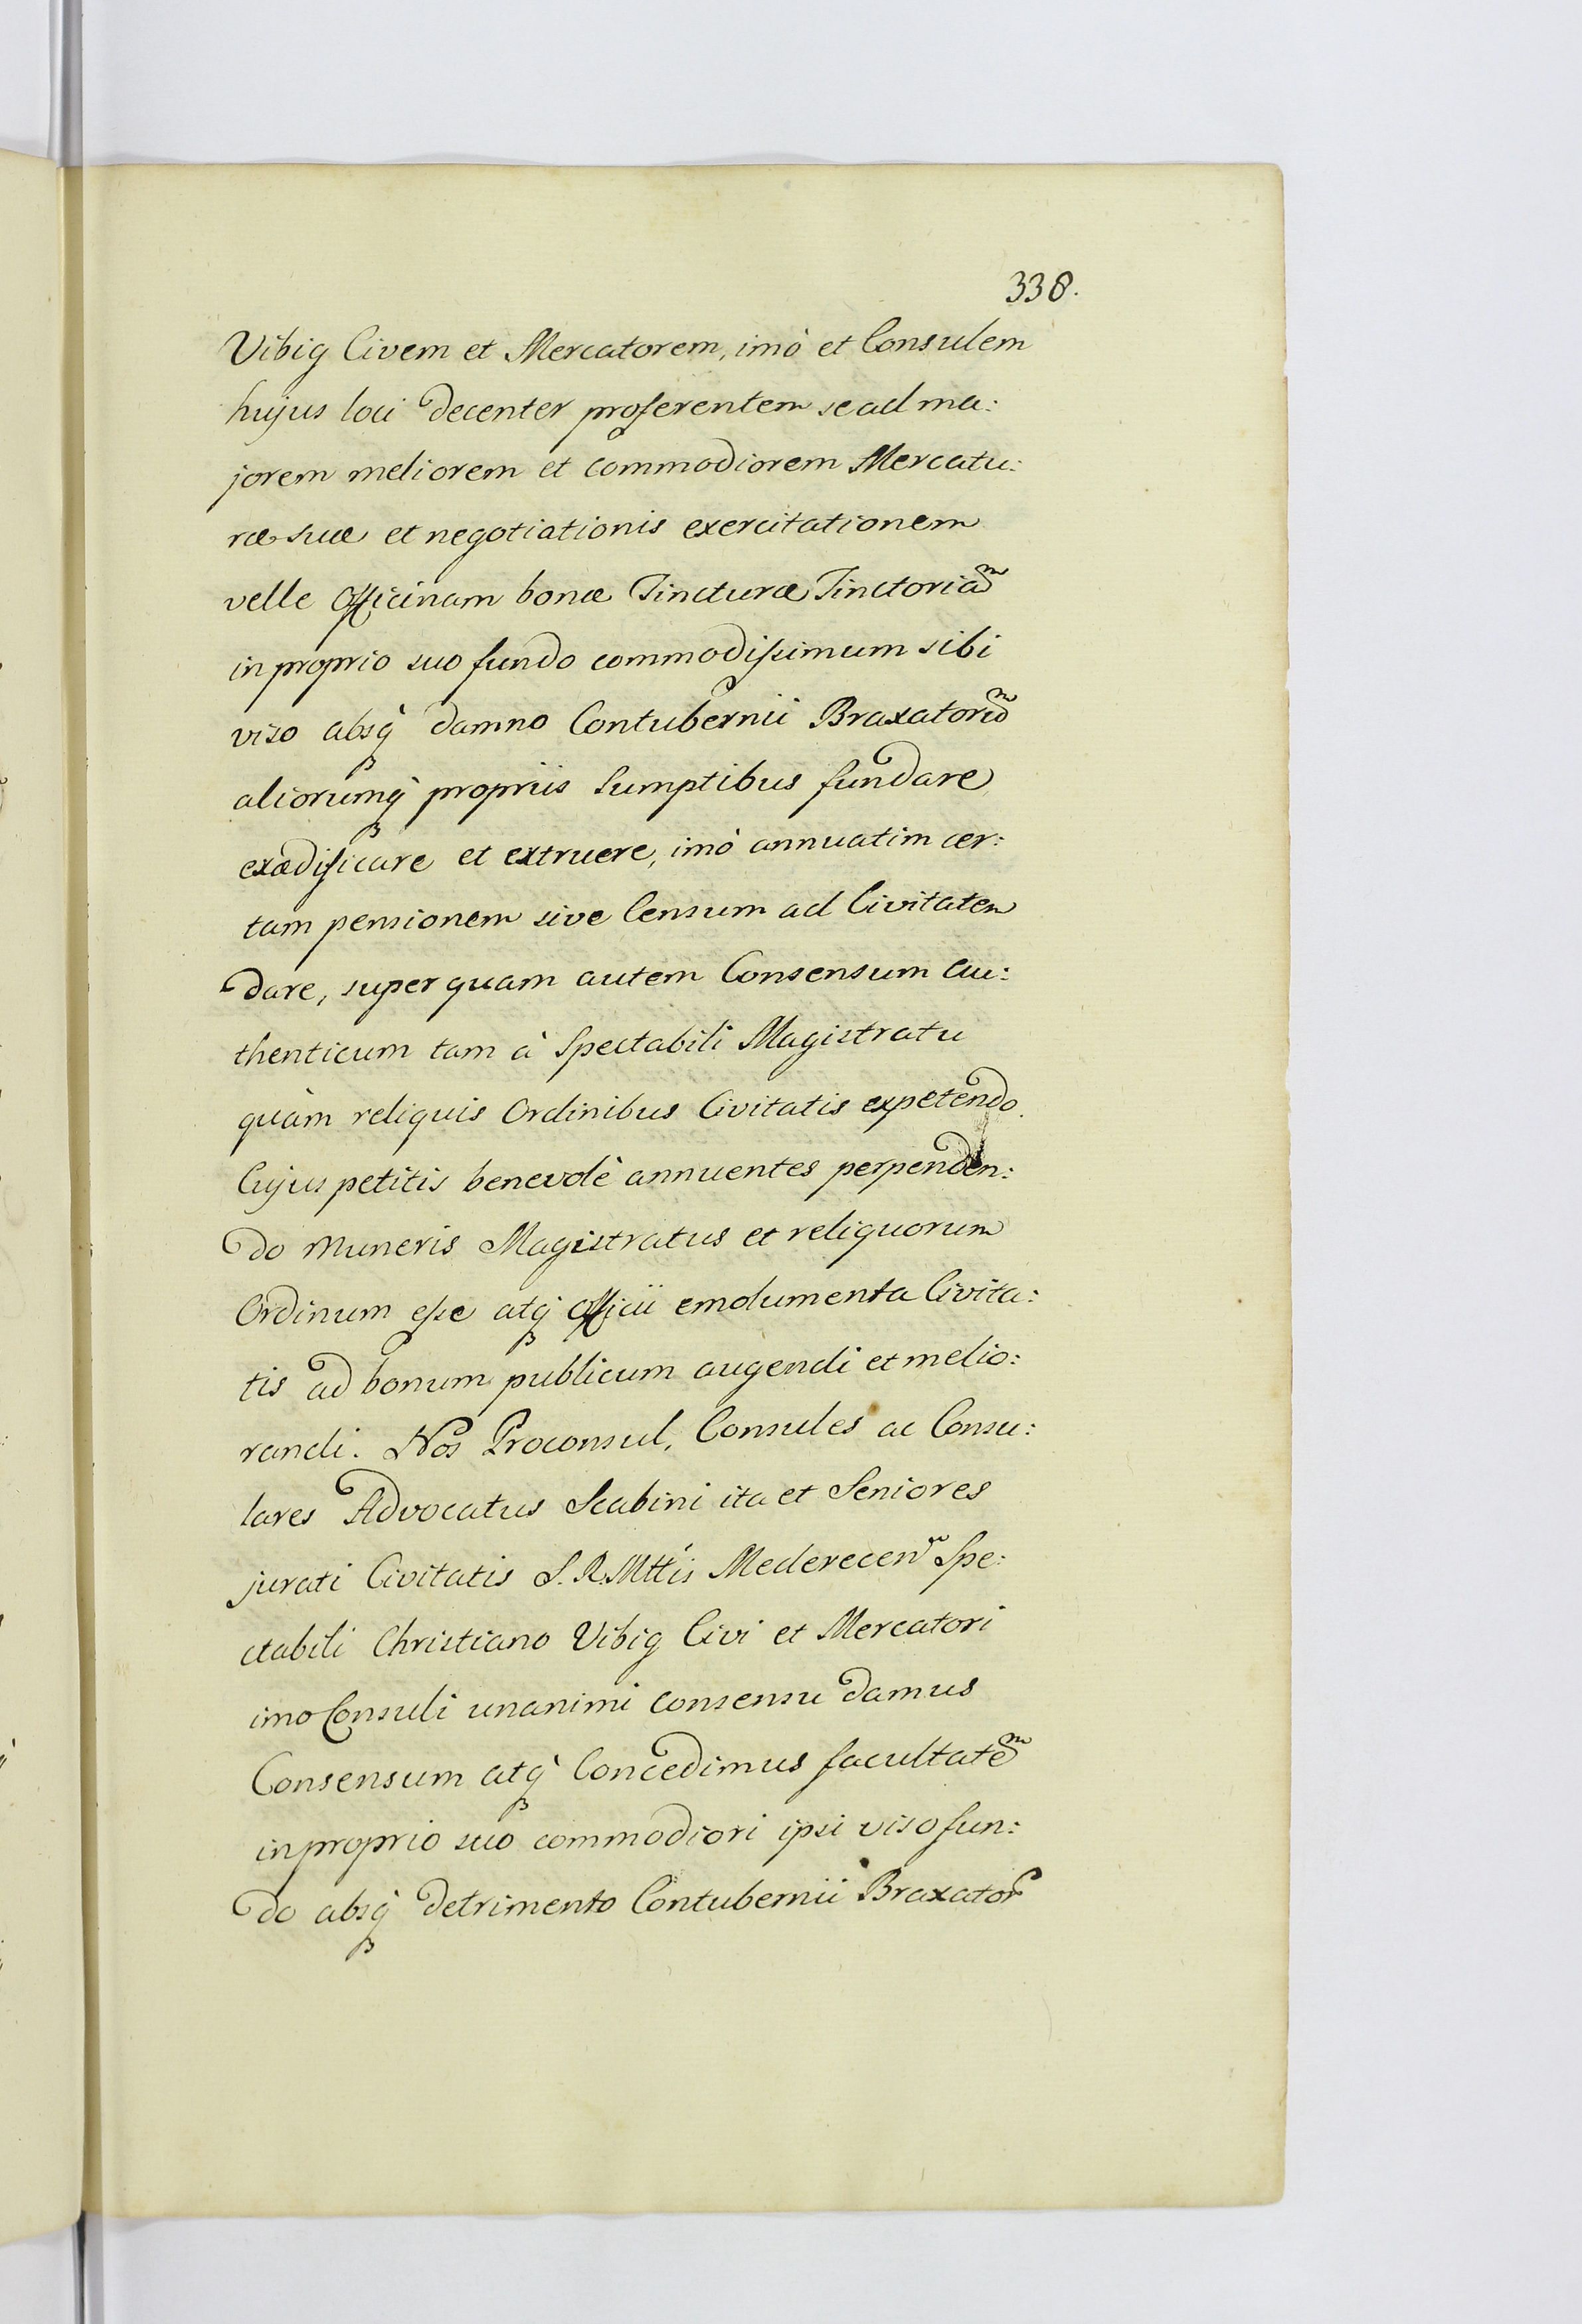 338.
Vibig Civem et Mercatorem, imò et Consulem
hujus loci decenter proferentem se ad ma:
jorem meliorem et commodiorem Mercatu:
ræ suæ et negotiationis exercitationem
velle Officinam bonæ Tincturæ Tinctoria͠m
in proprio suo fundo commodissimum sibi
viso absq̀ damno Contubernii Braxatoru͠m
aliorumq̀ propriis Sumptibus fundare
exædificare et extruere, imò annuatim cer:
tam pensionem sive Censum ad Civitatem
dare, super quam autem Consensum au:
thenticum tam à Spectabili Magistratu
quàm reliquis Ordinibus Civitatis expetendo.
Cujus petitis benevolè annuentes perpenden:
do muneris Magistratus et reliquorum
Ordinum esse atq̀ Officii emolumenta Civita:
tis ad bonum publicum augendi et melio:
randi. Nos Proconsul, Consules ac Consu:
lares Advocatus Scabini ita et Seniores
jurati Civitatis S. R. Mttis Mederecen͠ Spe:
ctabili Christiano Vibig Civi et Mercatori
imo Consuli unanimi consensu damus
Consensum atq̀ Concedimus facultate͠m
in proprio suo commodiori ipsi viso fun:
do absq̀ detrimento Contubernii Braxator